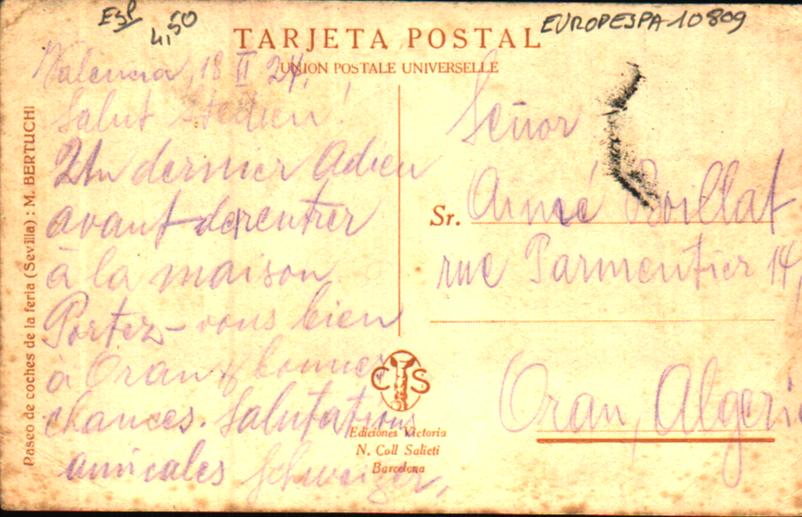 ESP
41,50
EUROPESPA-10809
TARJETA POSTAL
UNION POSTALE UNIVERSELLE
Paseo de coches de la feria (Sevilla) : M. BERTUCHI
Valencia, 18 II 24.
Salut !
Un dernier Adieu
avant de rentrer
à la maison
Portez-vous bien
à Oran & bonnes
chances. Salutations
amicales Schweizer.
Señor
Sr. Aimé Boillat
rue Parmentier 14,
Oran, Algerie
C S
Ediciones Victoria
N. Coll Salieti
Barcelona